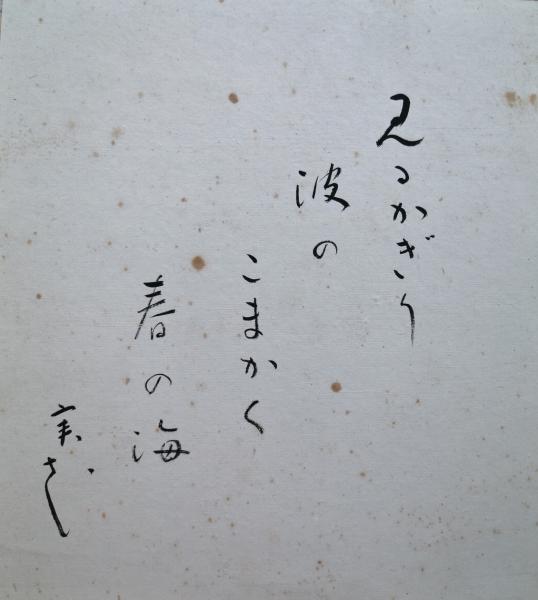 見るかぎり
波の
こまかく
春の海
実